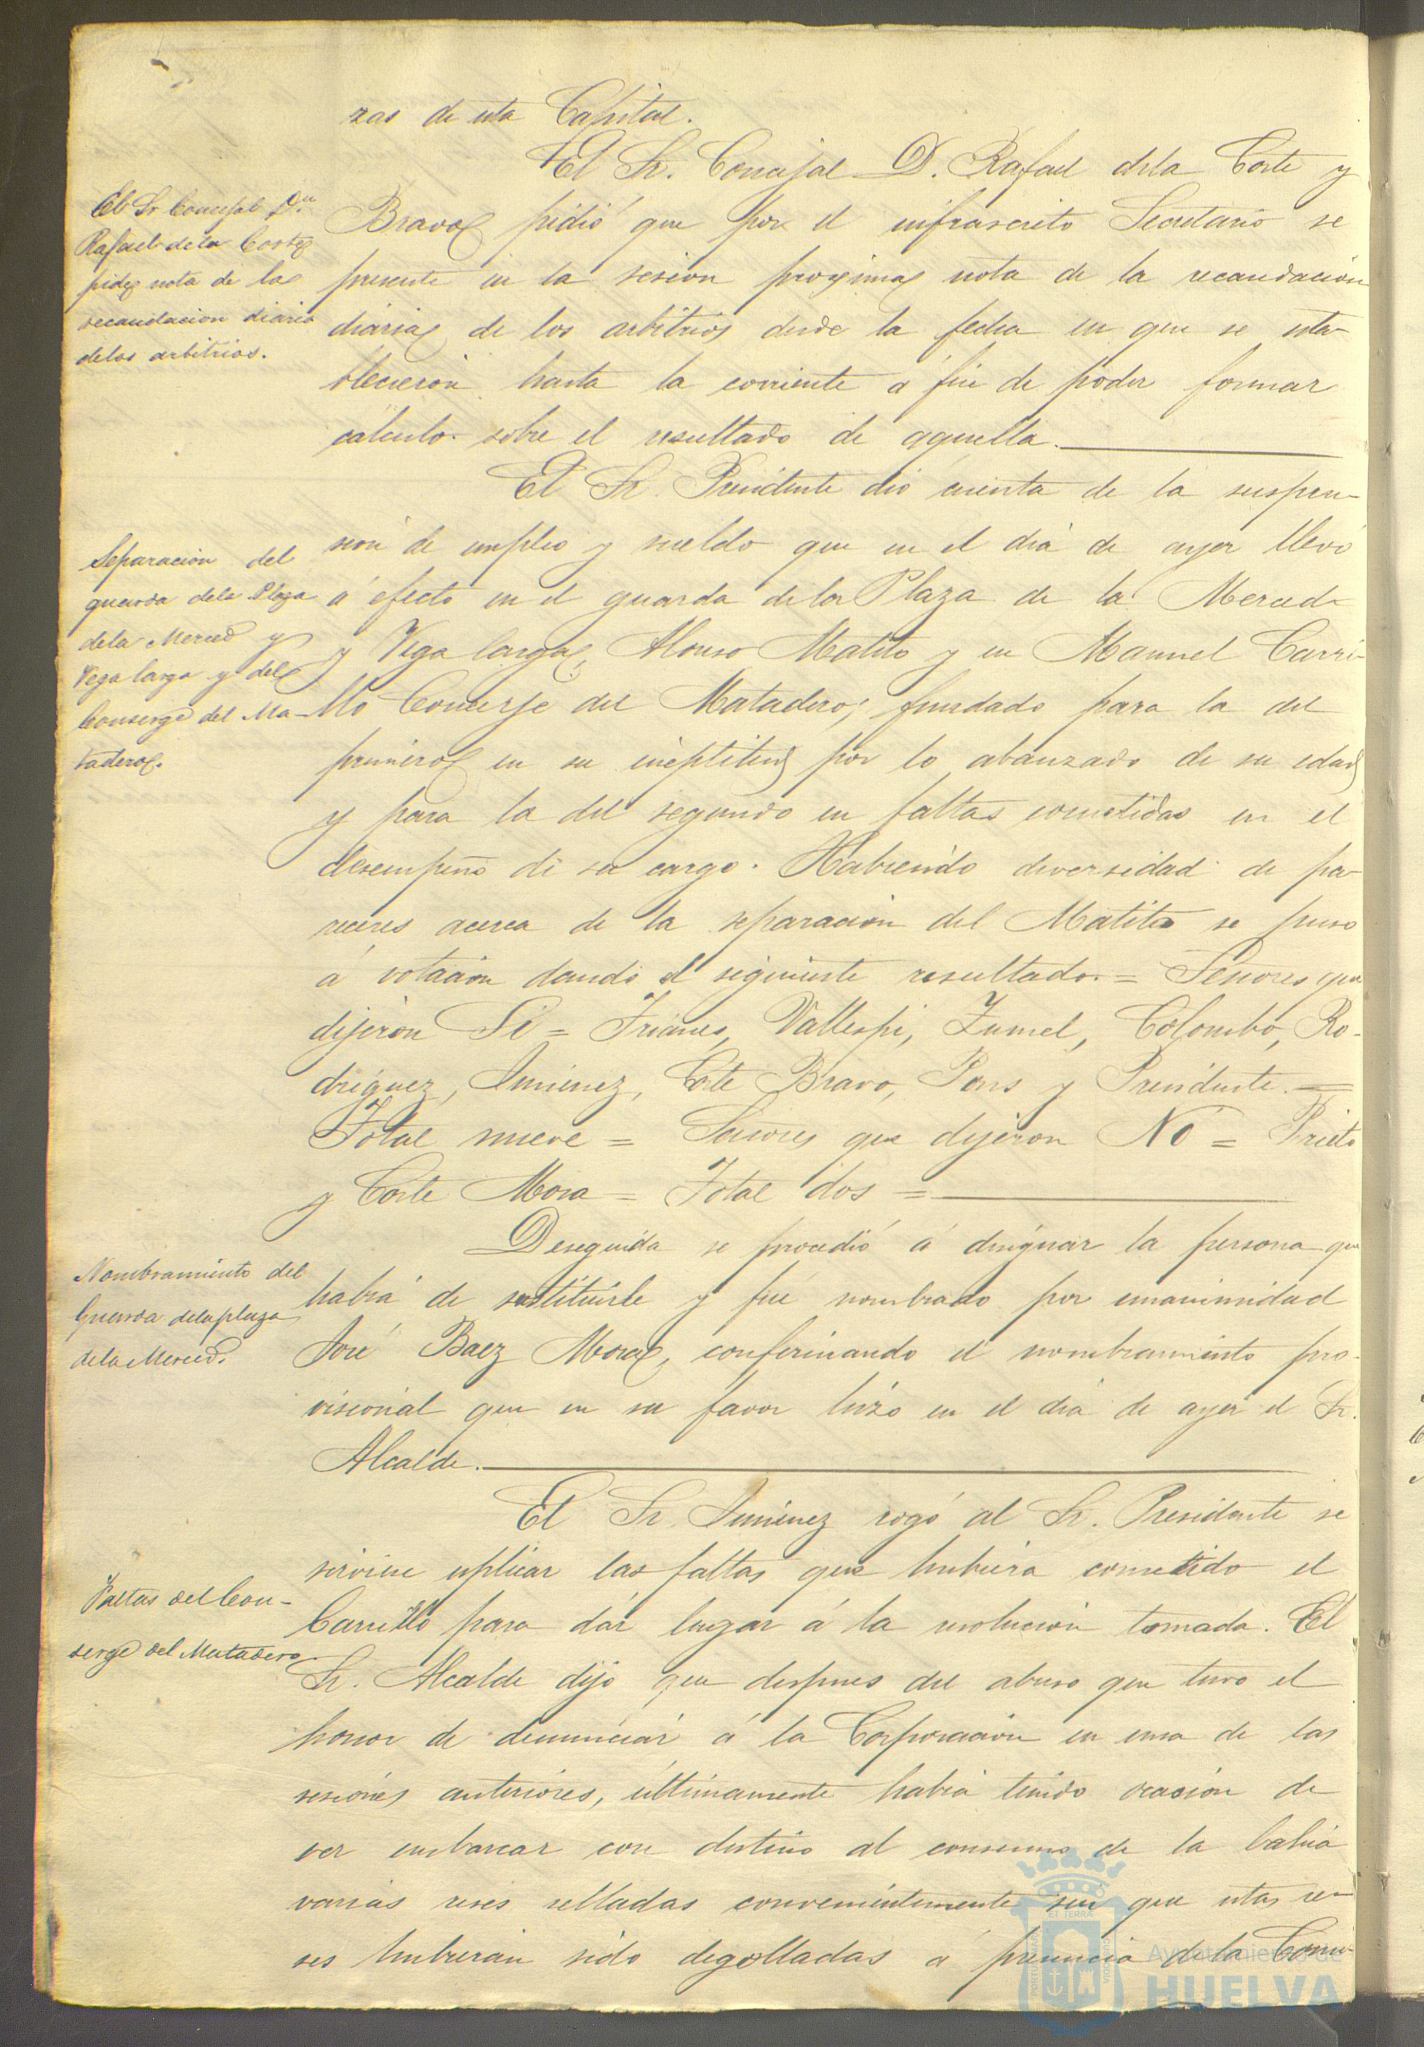 zas de esta Capital.
El Sr. Concejal D. Rafael dela Corte y
Bravo pidió que por el infrascrito Secretario se
presente en la sesion proxima nota de la recaudación
diaria de los arbitrios desde la fecha en que se esta-
blecieron hasta la corriente á fin de poder formar
cálculo sobre el resultado de aquella.
El Sr Concejal Dn
Rafael dela Corte
pide nota de la
recaudacion diaria
delos arbitrios.
El Sr. Presidente dió cuenta de la suspen-
sion de empleo y sueldo que en el dia de ayer llevó
á efecto en el guarda dela Plaza de la Merced
y Vega larga, Alonso Matito y en Manuel Carri-
llo Conserje del Matadero; fundado para la del
primero en su ineptitud por lo abanzado de su edad
y para la del segundo en faltas cometidas en el
desempeño de su cargo. Habiendo diversidad de pa-
receres acerca de la separación del Matito se puso
á votación dando el siguiente resultado. = Señores que
dijeron Si = Trianes, Vallespi, Zumel, Colombo, Ro-
driguez, Jimenez, Corte Bravo, Pons y Presidente. =
Total nueve = Señores que dijeron No = Prieto
y Corte Mora = Total dos =
Separacion del
guarda dela Plaza
dela Merced y
Vega larga y del
Conserge del Ma-
tadero.
Deseguida se procedió á designar la persona que
habia de sustituirle y fue nombrado por unanimidad
José Baez Mora, confirmando el nombramiento pro-
visional que en su favor hizo en el dia de ayer el Sr.
Alcalde.
Nombramiento del
Guarda dela plaza
dela Merced.
El Sr. Jimenez rogó al Sr. Presidente se
sirviese esplicar las faltas que hubiera cometido el
Carrillo para dar lugar á la resolución tomada. El
Sr. Alcalde dijo que despues del abuso que tuvo el
honor de denunciar á la Corporación en una de las
sesiones anteriores, últimamente habia tenido ocasión de
ver embarcar con destino al consumo de la bahia
varias reses selladas convenientemente sin que estas re-
ses hubieran sido degolladas á presencia de la Comi-
Faltas del Con-
serge del Matadero.
Ayuntamiento de
HUELVA